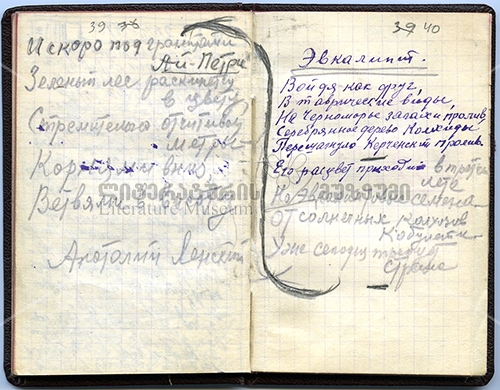 39
И скоро под гранитами
Ай-Петри
Зеленый лес раскинется
в цвету
Стремительно отчитывая
метры
вниз
Ветвями
Анатолий
39 40
Эвкалипт.
Войдя как друг,
В таврические виды,
На Черноморье пролив
Серебрянное дерево Колхиды
Перешагнуло Керченский пролив.
Его расцвет приходит в третье
лето
семена
От солнечных колхозов
Кобулети
Уже сегодня требует
Страна
ლიტერატურის მუზეუმი
Literature Museum